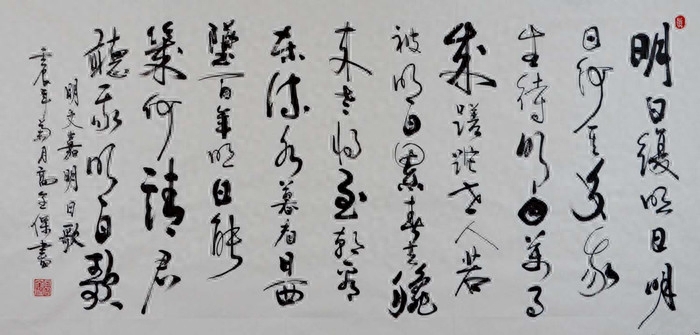 明日復明日明
日何其多我
生待明日萬事
成蹉跎世人若
被明日累春去秋
来老将至朝看
東流水暮看日西
墜百年明日能
幾何請君
聽我明日歌
明文嘉明日歌
辰年菊月書